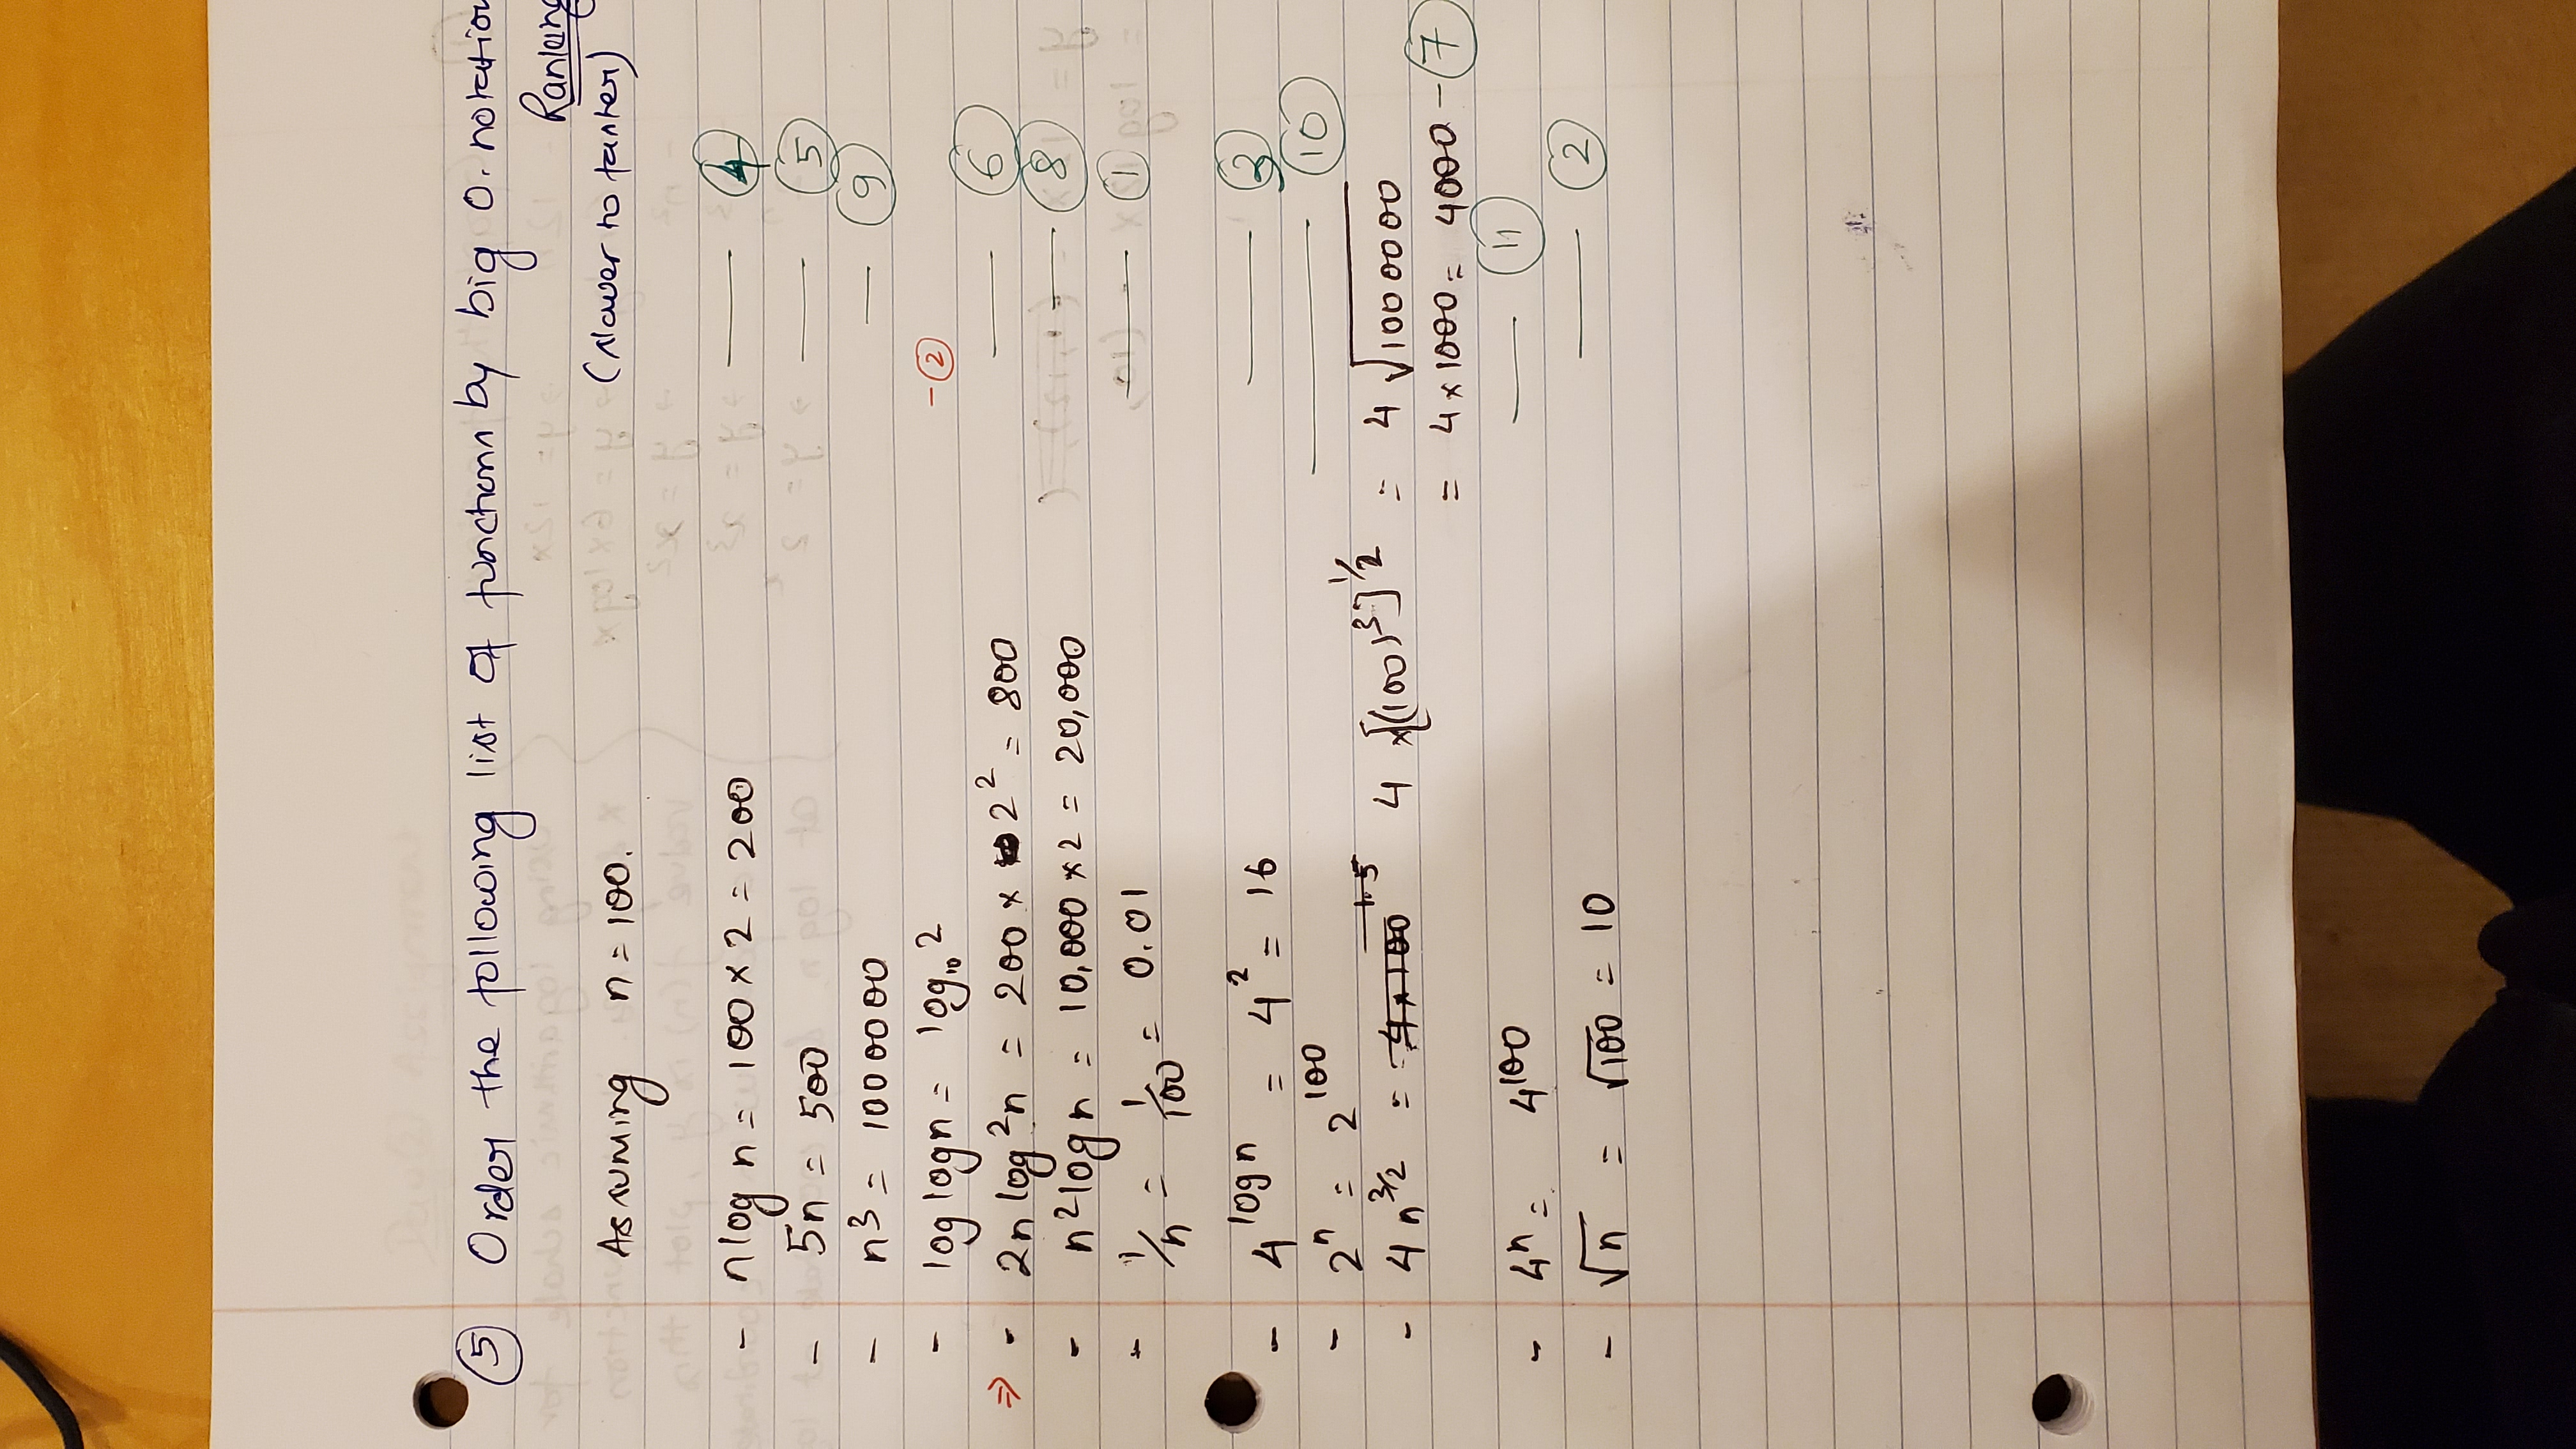 ⑤ Order the following list of functionn by big O. notation
Ranking
Assuming n = 100. (slower to faster)
- n log n = 100 × 2 = 200 —— ④
- 5n = 500 —— ⑤
- n³ = 1000000 — ⑨
- log log n = log₁₀ 2 - ②
⇒ - 2n log²n = 200 × 2² = 800 —— ⑥
- n² log n = 10,000 × 2 = 20,000 —— ⑧
- 1/n = 1/100 = 0.01 —— ①
- 4^log n = 4² = 16 —— ③
- 2ⁿ = 2¹⁰⁰ —— ⑩
- 4n^3/2 = 4 × [(100)³]^1/2 = 4 √1000000
= 4 × 1000 = 4000 - ⑦
- 4ⁿ = 4¹⁰⁰ —— ⑪
- √n = √100 = 10 —— ②